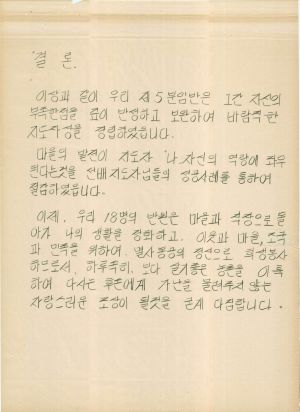 결 론.
이상과 같이 우리 제5분임반은 그간 자신의
부족한점을 깊이 반성하고 보완하여 바람직한
지도자상을 정립하였습니다.
마을의 발전이 지도자 나 자신의 역량에 좌우
된다는것을 선배지도자님들의 성공사례를 통하여
절감하였습니다.
이제, 우리 18명의 반원은 마을과 직장으로 돌
아가 나의 생활을 정화하고, 이웃과 마을, 조국
과 민족을 위하여, 멸사봉공의 정신으로 희생봉사
하므로서, 하루속히, 보다 살기좋은 농촌을 이룩
하여 다시는 후손에게 가난을 물려주지 않는
자랑스러운 조상이 될것을 굳게 다짐합니다.